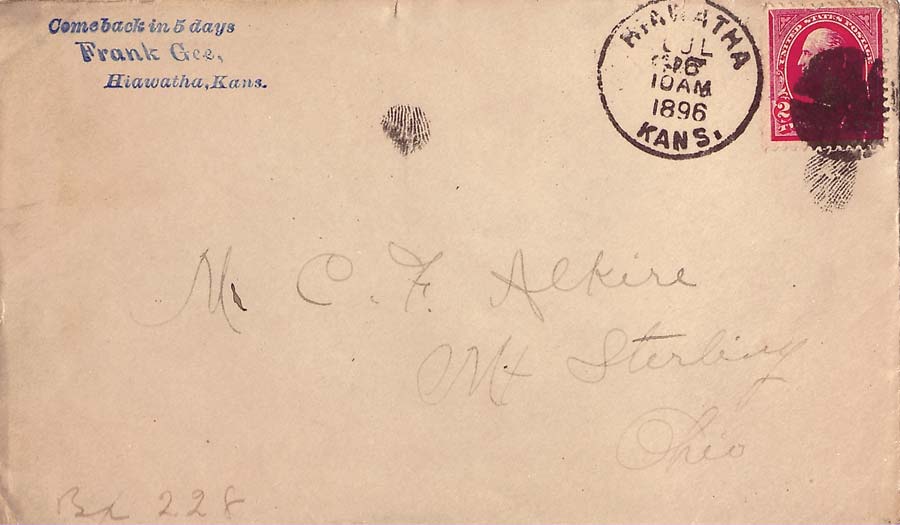 Comeback in 5 days
Frank Gee,
Hiawatha, Kans.
HIAWATHA
JUL
6
10AM
1896
KANS.
UNITED STATES POSTAGE
2
Mr C. F. Alkire
Mt Sterling
Ohio
Bx 228